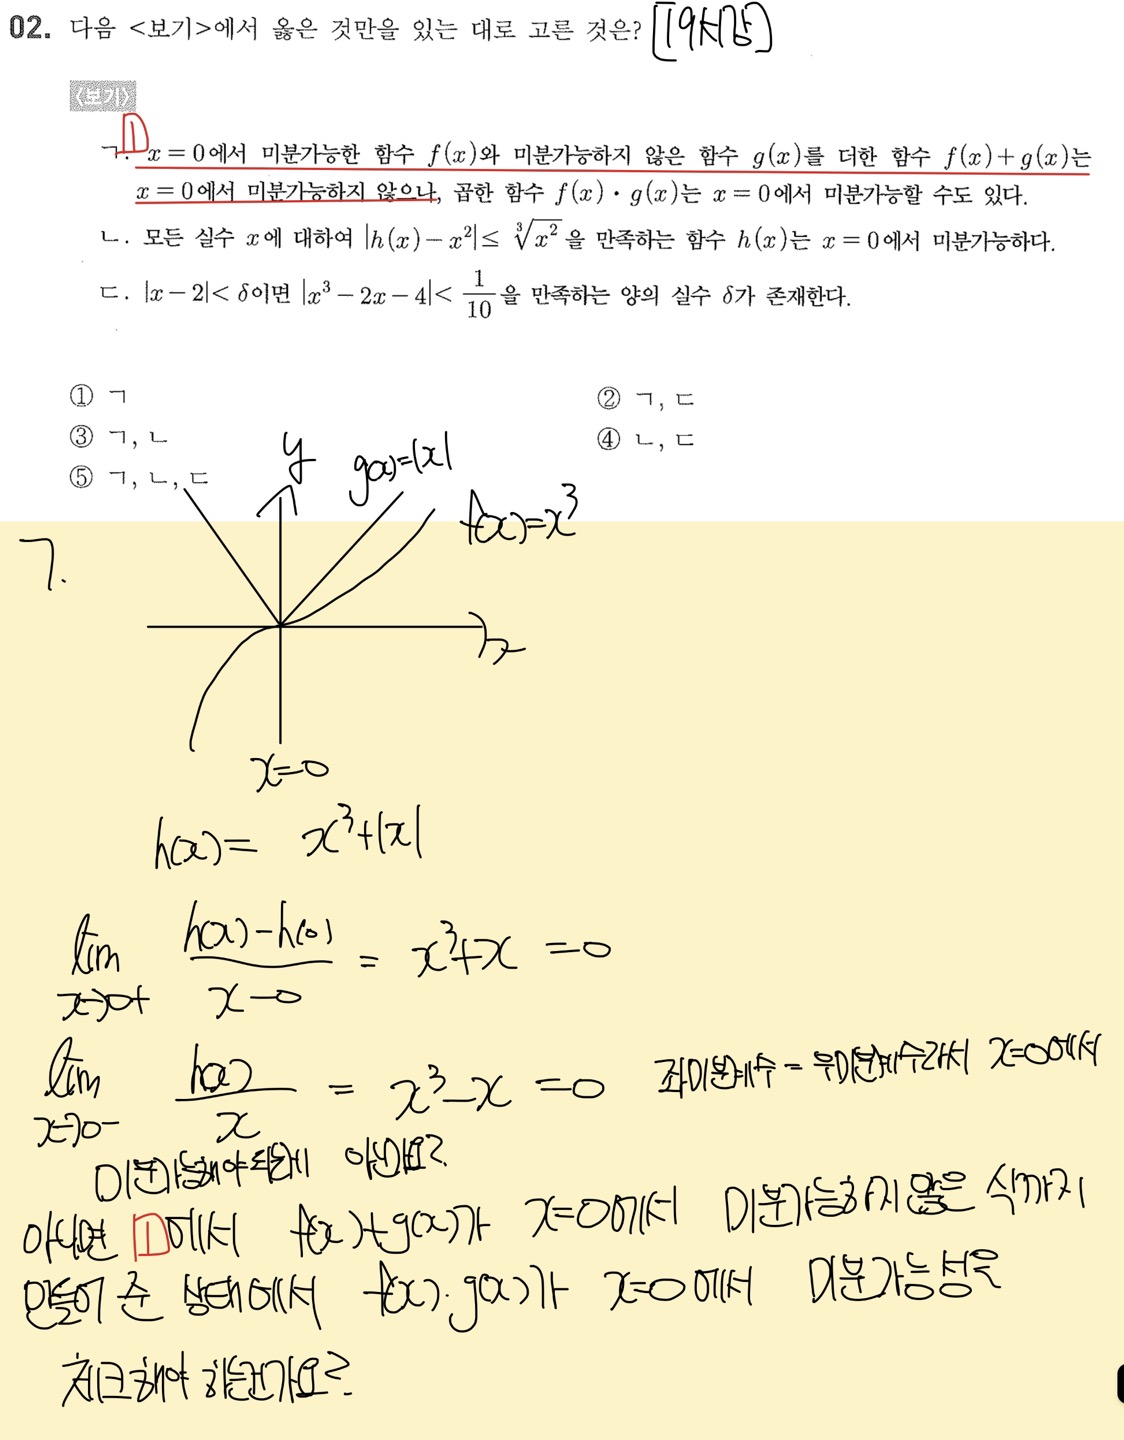 02. 다음 <보기>에서 옳은 것만을 있는 대로 고른 것은? [19서강]
<보기>
ㄱ. ① x = 0에서 미분가능한 함수 f(x)와 미분가능하지 않은 함수 g(x)를 더한 함수 f(x)+g(x)는
x = 0에서 미분가능하지 않으나, 곱한 함수 f(x)·g(x)는 x = 0에서 미분가능할 수도 있다.
ㄴ. 모든 실수 x에 대하여 |h(x)-x²| ≤ ∛x² 을 만족하는 함수 h(x)는 x = 0에서 미분가능하다.
ㄷ. |x-2| < δ이면 |x³-2x-4| < 1/10 을 만족하는 양의 실수 δ가 존재한다.
① ㄱ ② ㄱ, ㄷ
③ ㄱ, ㄴ ④ ㄴ, ㄷ
⑤ ㄱ, ㄴ, ㄷ
y g(x)=|x|
f(x)=x³
ㄱ.
x
x=0
h(x)= x³+|x|
lim x→0+ h(x)-h(0) / x-0 = x³+x =0
lim x→0- h(x) / x = x³-x =0 좌미분계수=우미분계수라서 x=0에서
미분가능해야 되는게 아닌가요?
아니면 ①에서 f(x)+g(x)가 x=0에서 미분가능하지 않은 식까지
만들어 준 상태에서 f(x)·g(x)가 x=0에서 미분가능성을
체크해야 하는건가요?